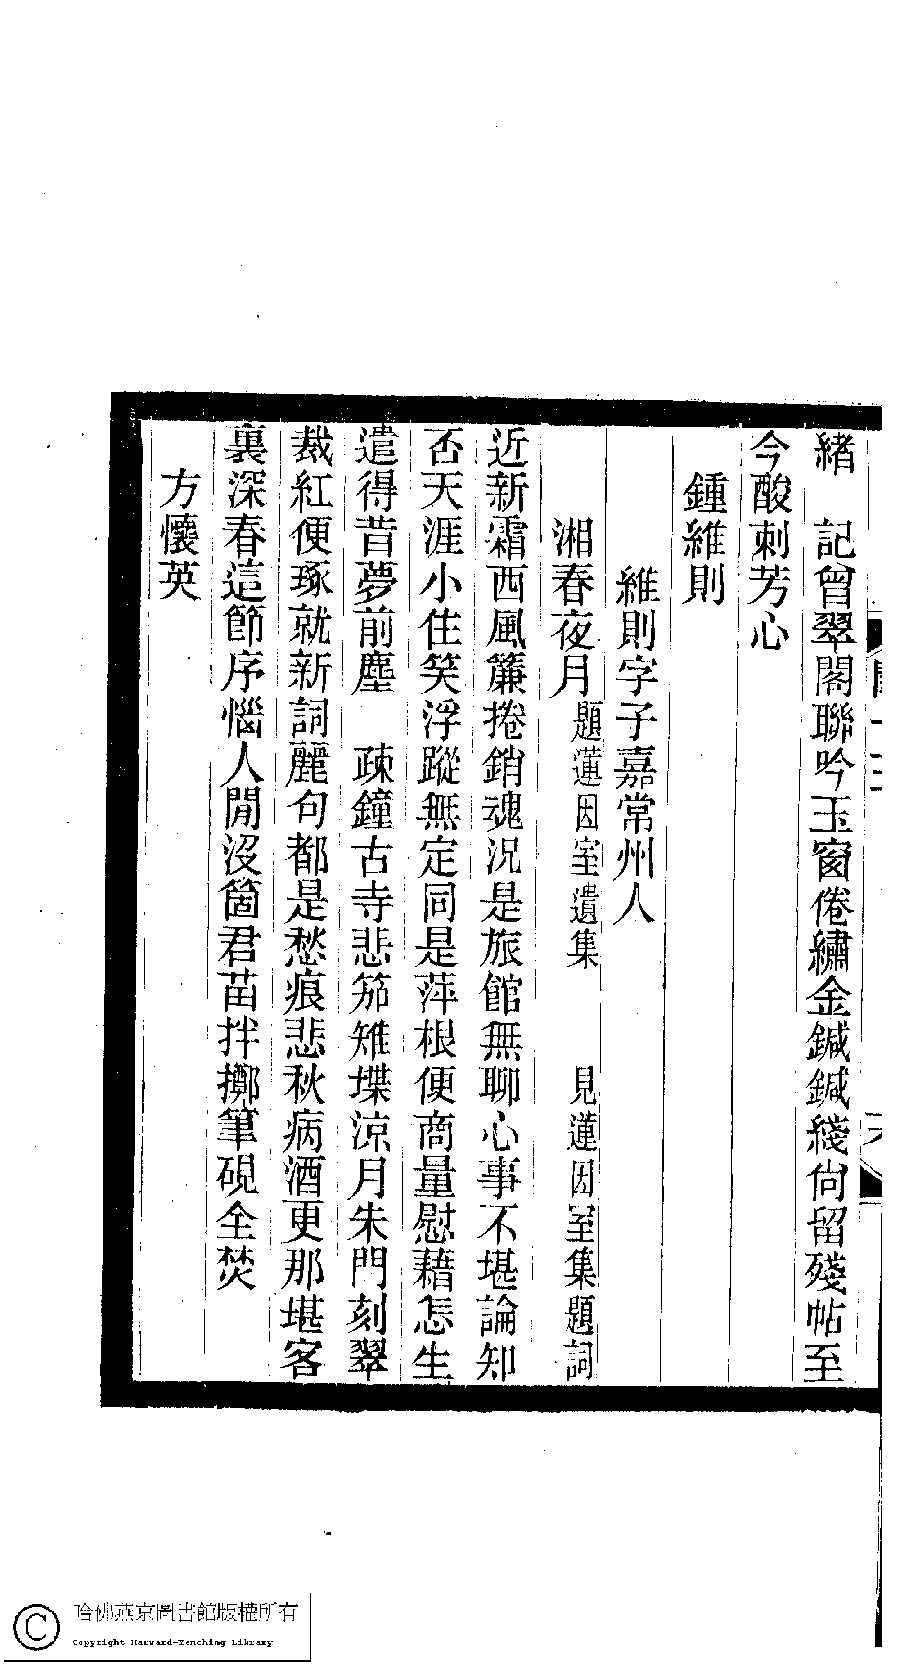 緒　記曾翠閣聯吟玉窗倦繡金鍼鍼綫尙留殘帖至
今酸刺芳心
鍾維則
維則字子嘉常州人
湘春夜月 題蓮因室遺集 見蓮因室集題詞
近新霜西風簾捲銷魂況是旅館無聊心事不堪論知
否天涯小住笑浮蹤無定同是萍根便商量慰藉怎生
遣得昔夢前塵　疎鐘古寺悲笳雉堞涼月朱門刻翠
裁紅便琢就新詞麗句都是愁痕悲秋病酒更那堪客
裏深春這節序惱人閒沒箇君苗拌擲筆硯全焚
方懷英
哈佛燕京圖書館版權所有
Copyright Harvard-Yenching Library